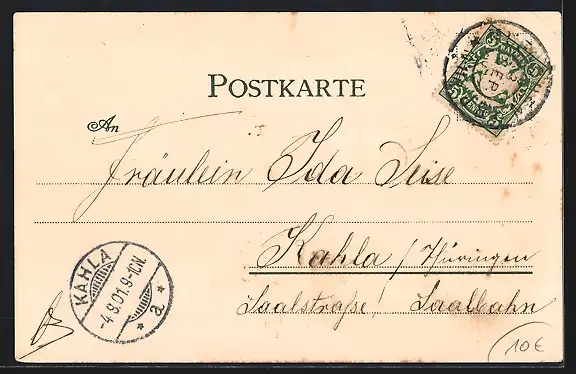 POSTKARTE
An
Fräulein Ida Seise
Kahla / Thüringen
Saalstraße! Saalbahn
KAHLA
-4.9.01.9-10N.
* a *
5 BAYERN 5
10€